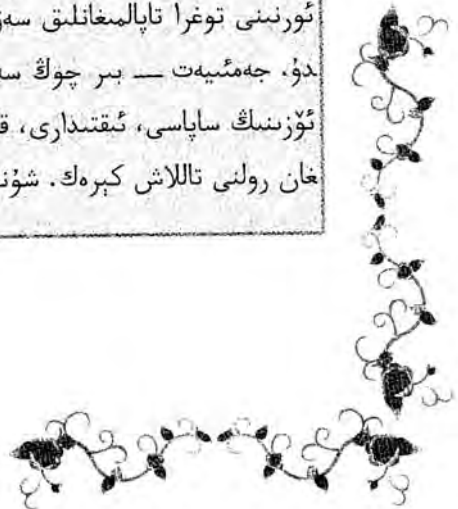 ئورنىنى توغرا تاپالمىغانلىق
دۇ، جەمئىيەت — بىر چوڭ
ئۆزىنىڭ ساپاسى، ئىقتىدارى،
غان رولنى تاللاش كېرەك.